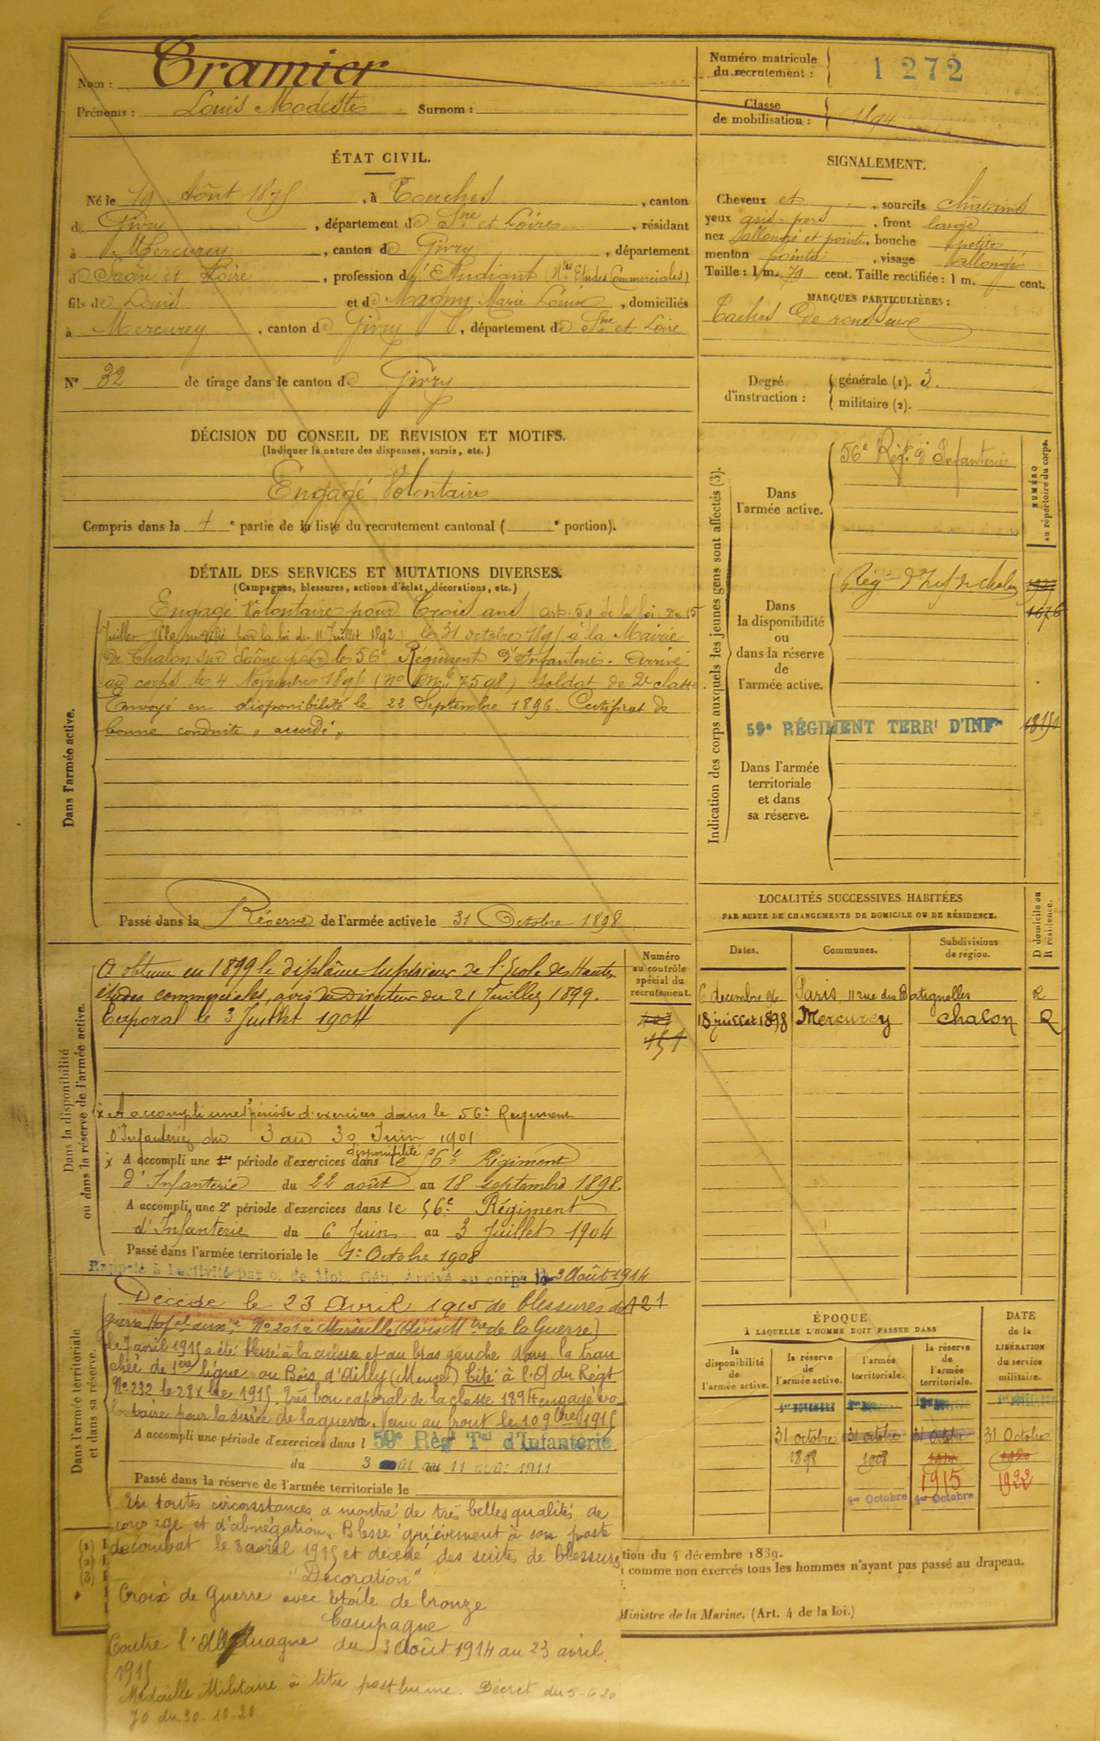 Nom : Tramier
Prénoms : Louis Modeste Surnom :
Numéro matricule du recrutement : 1272
Classe de mobilisation : 1894
ÉTAT CIVIL.
Né le 19 Août 1875, à Touches, canton
de Givry, département de Sne et Loire, résidant
à Mercurey, canton de Givry, département
de Saône et Loire, profession d'Etudiant (Htes Etudes Commerciales)
fils de Louis et de Magny Marie Louise, domiciliés
à Mercurey, canton de Givry, département de Sne et Loire
N° 32 de tirage dans le canton de Givry
SIGNALEMENT.
Cheveux et sourcils châtains
yeux gris-vers, front large
nez allongé et pointu, bouche petite
menton pointu, visage allongé
Taille : 1 m. 71 cent. Taille rectifiée : 1 m. cent.
MARQUES PARTICULIÈRES :
Taches de rousseur
Degré d'instruction : générale (1). 3.
militaire (2).
DÉCISION DU CONSEIL DE REVISION ET MOTIFS.
(Indiquer la nature des dispenses, sursis, etc.)
Engagé Volontaire
Compris dans la 4e partie de la liste du recrutement cantonal ( e portion).
DÉTAIL DES SERVICES ET MUTATIONS DIVERSES.
(Campagnes, blessures, actions d'éclat, décorations, etc.)
Dans l'armée active.
Engagé Volontaire pour Trois ans (art. 59 de la loi du 15
Juillet 1889 modifié par la loi du 11 Juillet 1892) le 31 octobre 1895 à la Mairie
de Chalon sur Saône pour le 56e Régiment d'Infanterie. Arrivé
au corps le 4 Novembre 1895 (No Mle 7598) Soldat de 2e classe.
Envoyé en disponibilité le 22 Septembre 1896. Certificat de
bonne conduite « accordé ».
Passé dans la Réserve de l'armée active le 31 Octobre 1898
Indication des corps auxquels les jeunes gens sont affectés (3).
NUMÉRO au répertoire du corps.
Dans l'armée active.
56e Régt d'Infanterie
Dans la disponibilité ou dans la réserve de l'armée active.
Régt d'Inf de Chalon
1676
59e RÉGIMENT TERRl D'INFie
Dans l'armée territoriale et dans sa réserve.
LOCALITÉS SUCCESSIVES HABITÉES
PAR SUITE DE CHANGEMENTS DE DOMICILE OU DE RÉSIDENCE.
Dates. Communes. Subdivisions de région. D domicile ou R résidence.
6 decembre 96 Paris, 11 rue des Batignolles R
18 juillet 1898 Mercurey Chalon R
Dans la disponibilité ou dans la réserve de l'armée active.
Numéro au contrôle spécial du recrutement.
A obtenu en 1899 le diplôme supérieur de l'Ecole des Hautes
études commerciales, avis du Directeur du 21 Juillet 1899.
Caporal le 3 Juillet 1904
x A accompli une 1e période d'exercices dans le 56e Regiment
d'Infanterie du 3 au 30 Juin 1901
x A accompli une période d'exercices dans disponibilité le 56e Régiment
d'Infanterie du 22 août au 18 Septembre 1898
A accompli une 2e période d'exercices dans le 56e Régiment
d'Infanterie du 6 Juin au 3 Juillet 1904
Passé dans l'armée territoriale le 1er Octobre 1908
Rappelé à l'activité par o. de Mob. Gén. Arrivé au corps le 3 Août 1914
Dans l'armée territoriale et dans sa réserve.
Décédé le 23 Avril 1915 de blessures de 121
guerre Hopital auxre No 201 à Marseille (Avis Mtre de la Guerre)
Le 7 avril 1915 a été blessé à la cuisse et au bras gauche dans la tran
chée de 1ère ligne au Bois d'Ailly (Meuse) Cité à l'O/ du Régt
No 232 le 28 Xbre 1915. Très bon caporal de la classe 1894 engagé vo-
lontaire pour la durée de la guerre. Venu au front le 10 9bre 1915
A accompli une période d'exercices dans l 59e Régt Tal d'Infanterie
du 3 au 11 août 1911
Passé dans la réserve de l'armée territoriale le
En toutes circonstances a montré de très belles qualités de
courage et d'abnégation. Blessé grièvement à son poste
de combat le 8 avril 1915 et décédé des suites de blessures
"Décoration"
Croix de Guerre avec étoile de bronze
Campagne
Contre l'Allemagne du 3 Août 1914 au 23 avril
1915
Médaille Militaire à titre posthume. Décret du 5-6-20
JO du 30-10-20
ÉPOQUE
À LAQUELLE L'HOMME DOIT PASSER DANS
DATE de la LIBÉRATION du service militaire.
la disponibilité de l'armée active.
la réserve de l'armée active.
l'armée territoriale.
la réserve de l'armée territoriale.
31 octobre 31 octobre 31 octobre 31 Octobre
1898 1908 1915 1922
1er Octobre 1er Octobre
(1)
(2)
(3)
tion du 4 décembre 1889.
comme non exercés tous les hommes n'ayant pas passé au drapeau.
Ministre de la Marine. (Art. 4 de la loi.)